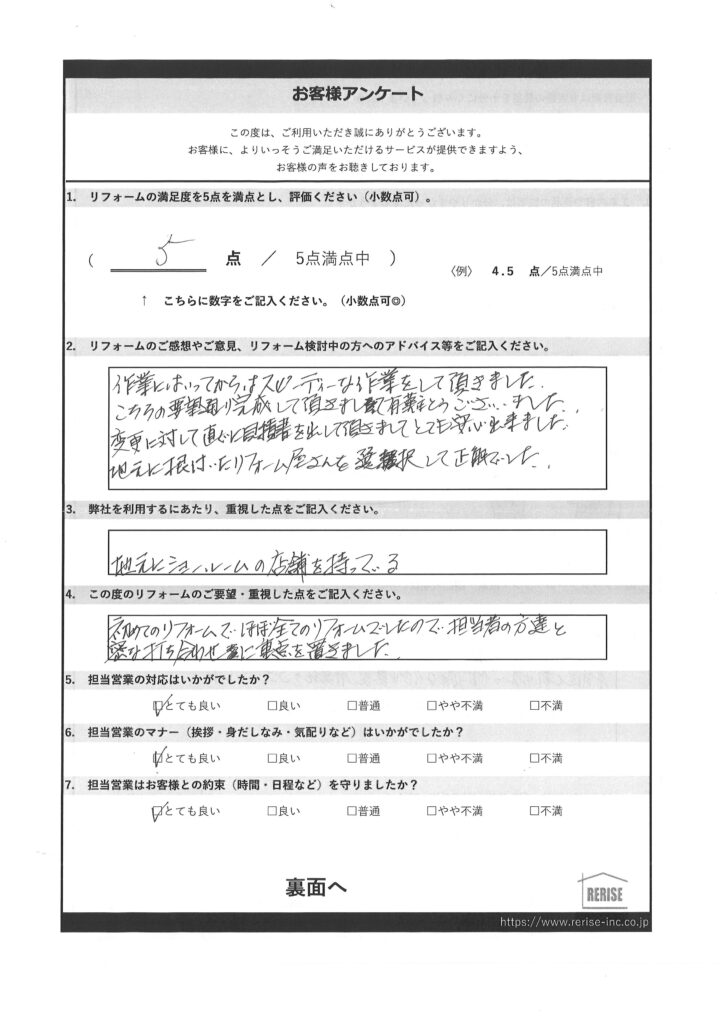 お客様アンケート
この度は、ご利用いただき誠にありがとうございます。
お客様に、よりいっそうご満足いただけるサービスが提供できますよう、
お客様の声をお聴きしております。
1. リフォームの満足度を5点を満点とし、評価ください（小数点可）。
（ 5 点 ／ 5点満点中 ）
〈例〉 4.5 点/5点満点中
↑ こちらに数字をご記入ください。（小数点可◎）
2. リフォームのご感想やご意見、リフォーム検討中の方へのアドバイス等をご記入ください。
作業にはいってからはスピーディーな作業をして頂きました。
こちらの要望通り完成して頂きまして有難とうございました。
変更に対して直ぐに見積書を出して頂きましてとても安心出来ました。
地元に根付いたリフォーム屋さんを選択して正解でした。
3. 弊社を利用するにあたり、重視した点をご記入ください。
地元にショールームの店舗を持っている
4. この度のリフォームのご要望・重視した点をご記入ください。
初めてのリフォームでほぼ全てのリフォームでしたので担当者の方達と
密な打ち合わせに重点を置きました。
5. 担当営業の対応はいかがでしたか？
☑とても良い □良い □普通 □やや不満 □不満
6. 担当営業のマナー（挨拶・身だしなみ・気配りなど）はいかがでしたか？
☑とても良い □良い □普通 □やや不満 □不満
7. 担当営業はお客様との約束（時間・日程など）を守りましたか？
☑とても良い □良い □普通 □やや不満 □不満
裏面へ
RERISE
https://www.rerise-inc.co.jp